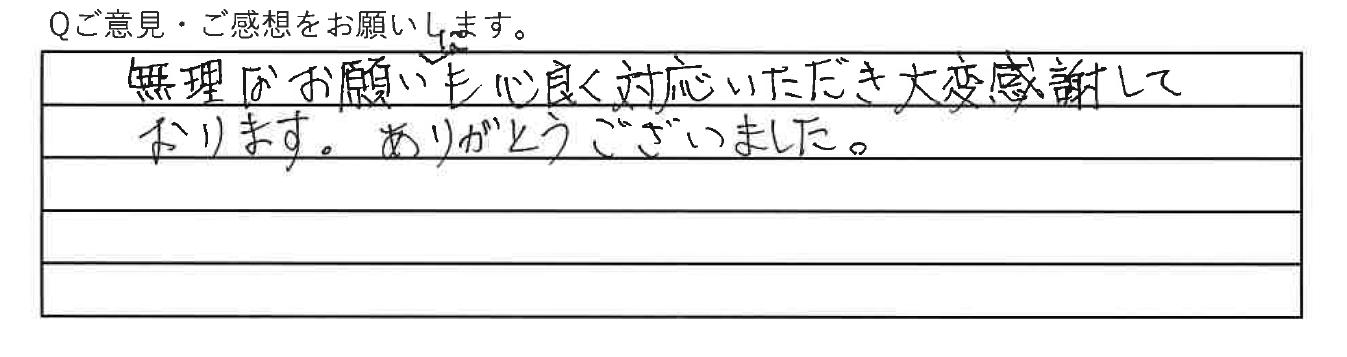 Qご意見・ご感想をお願いします。
無理なお願いにも心良く対応いただき大変感謝して
おります。ありがとうございました。